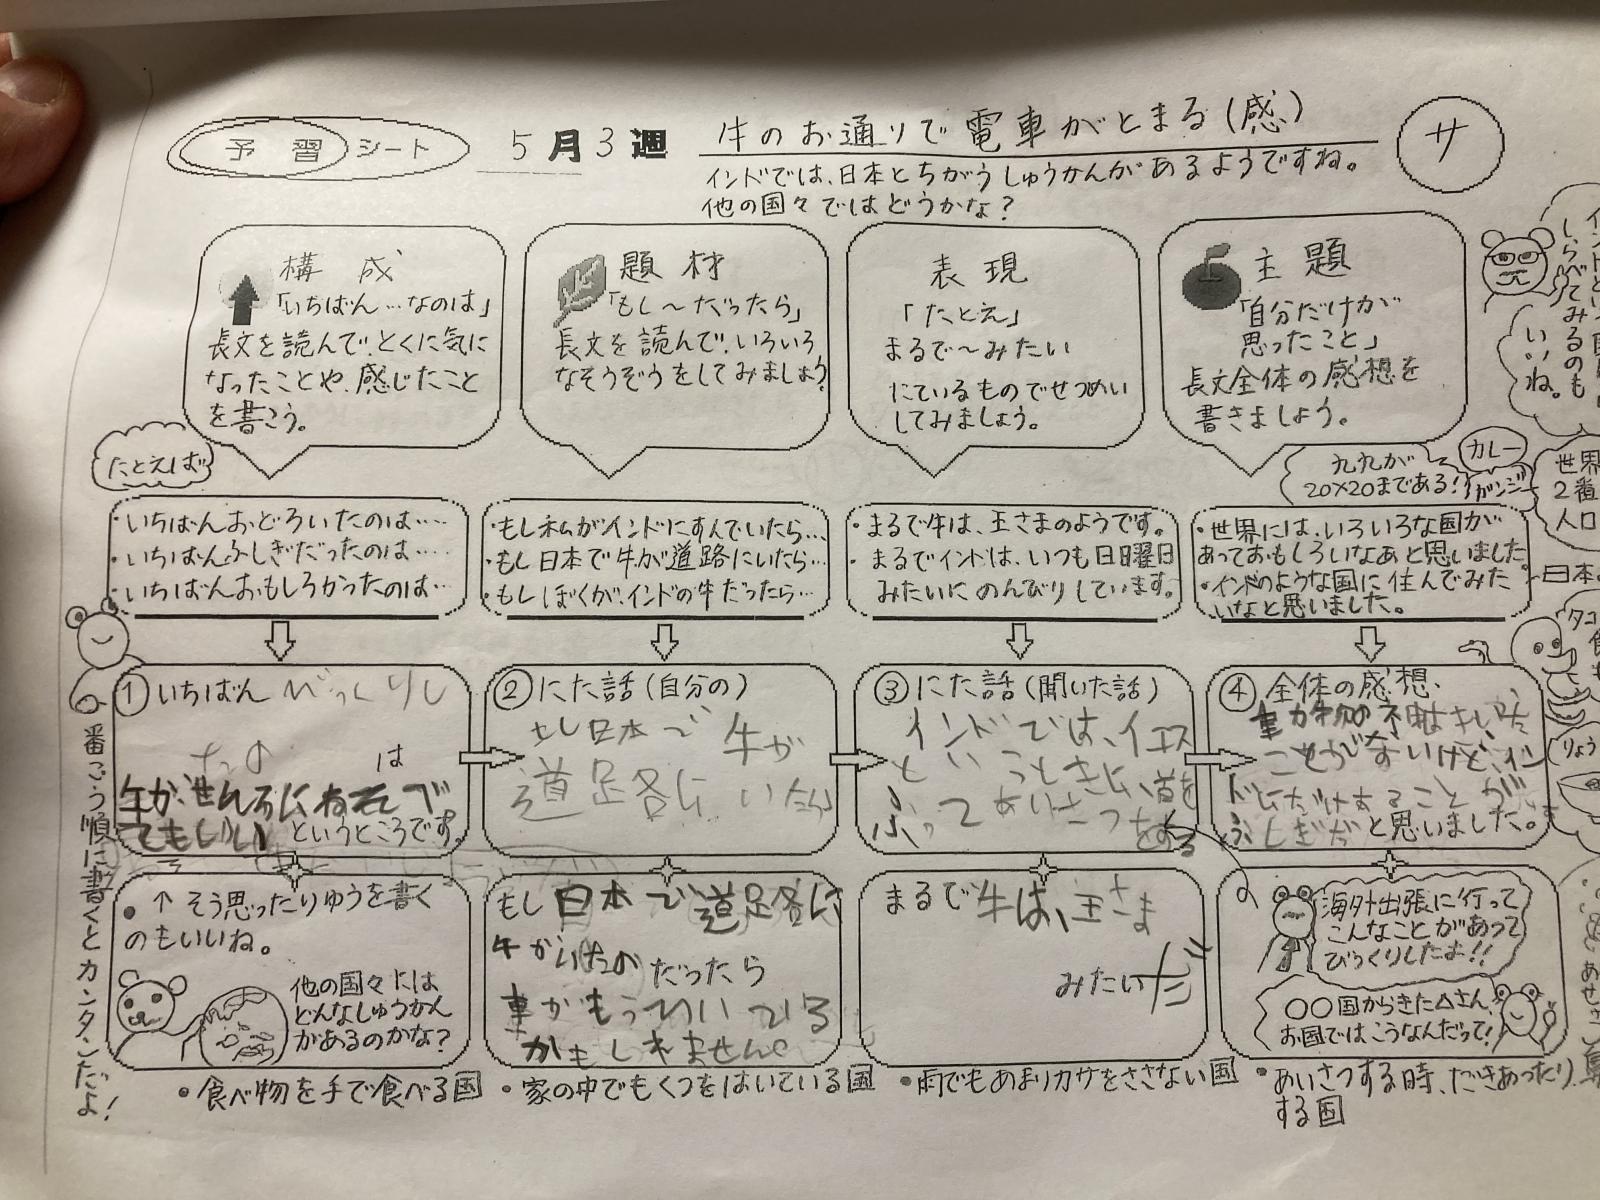 予習シート
5月3週
牛のお通りで電車がとまる(感)
サ
インドでは、日本とちがうしゅうかんがあるようですね。
他の国々ではどうかな?
構成
「いちばん…なのは」
長文を読んで、とくに気に
なったことや、感じたこと
を書こう。
題材
「もし〜だったら」
長文を読んで、いろいろ
なそうぞうをしてみましょう
表現
「たとえ」
まるで〜みたい
にているものでせつめい
してみましょう。
主題
「自分だけが
思ったこと」
長文全体の感想を
書きましょう。
しらべてみるのも
いいね。
たとえば
九九が
20×20まである!
カレー
ガンジー
世界
2番
人口
・いちばんおどろいたのは……
・いちばんふしぎだったのは……
・いちばんおもしろかったのは…
・もし私がインドにすんでいたら…
・もし日本で牛が道路にいたら…
・もしぼくが、インドの牛だったら…
・まるで牛は、王さまのようです。
・まるでインドは、いつも日曜日
みたいにのんびりしています。
・世界には、いろいろな国が
あっておもしろいなあと思いました。
・インドのような国に住んでみた
いなと思いました。
日本
タコ
①いちばんびっくりし
たの は
牛がせんろにねそべっ
てもいい というところです。
②にた話(自分の)
もし日本で牛が
道路にいたら
③にた話(聞いた話)
インドでは、イエス
というときに、首を
ふってあいさつをする
④全体の感想、
ことうです
いけど、イン
ドにだけすることが
ふしぎだと思いました。
番ごう順に書くとカンタンだよ!
●↑そう思ったりゆうを書く
のもいいね。
他の国々には
どんなしゅうかん
があるのかな?
もし日本で道路に
牛がいたのだったら
車がもう
かもしれません。
まるで牛は、王さま
みたいだ
海外出張に行って
こんなことがあって
びっくりしたよ!!
○○国からきた△さん、
お国ではこうなんだって!
りょう
・食べ物を手で食べる国
・家の中でもくつをはいている国
・雨でもあまりカサをささない国
・あいさつする時、だきあったり
する国